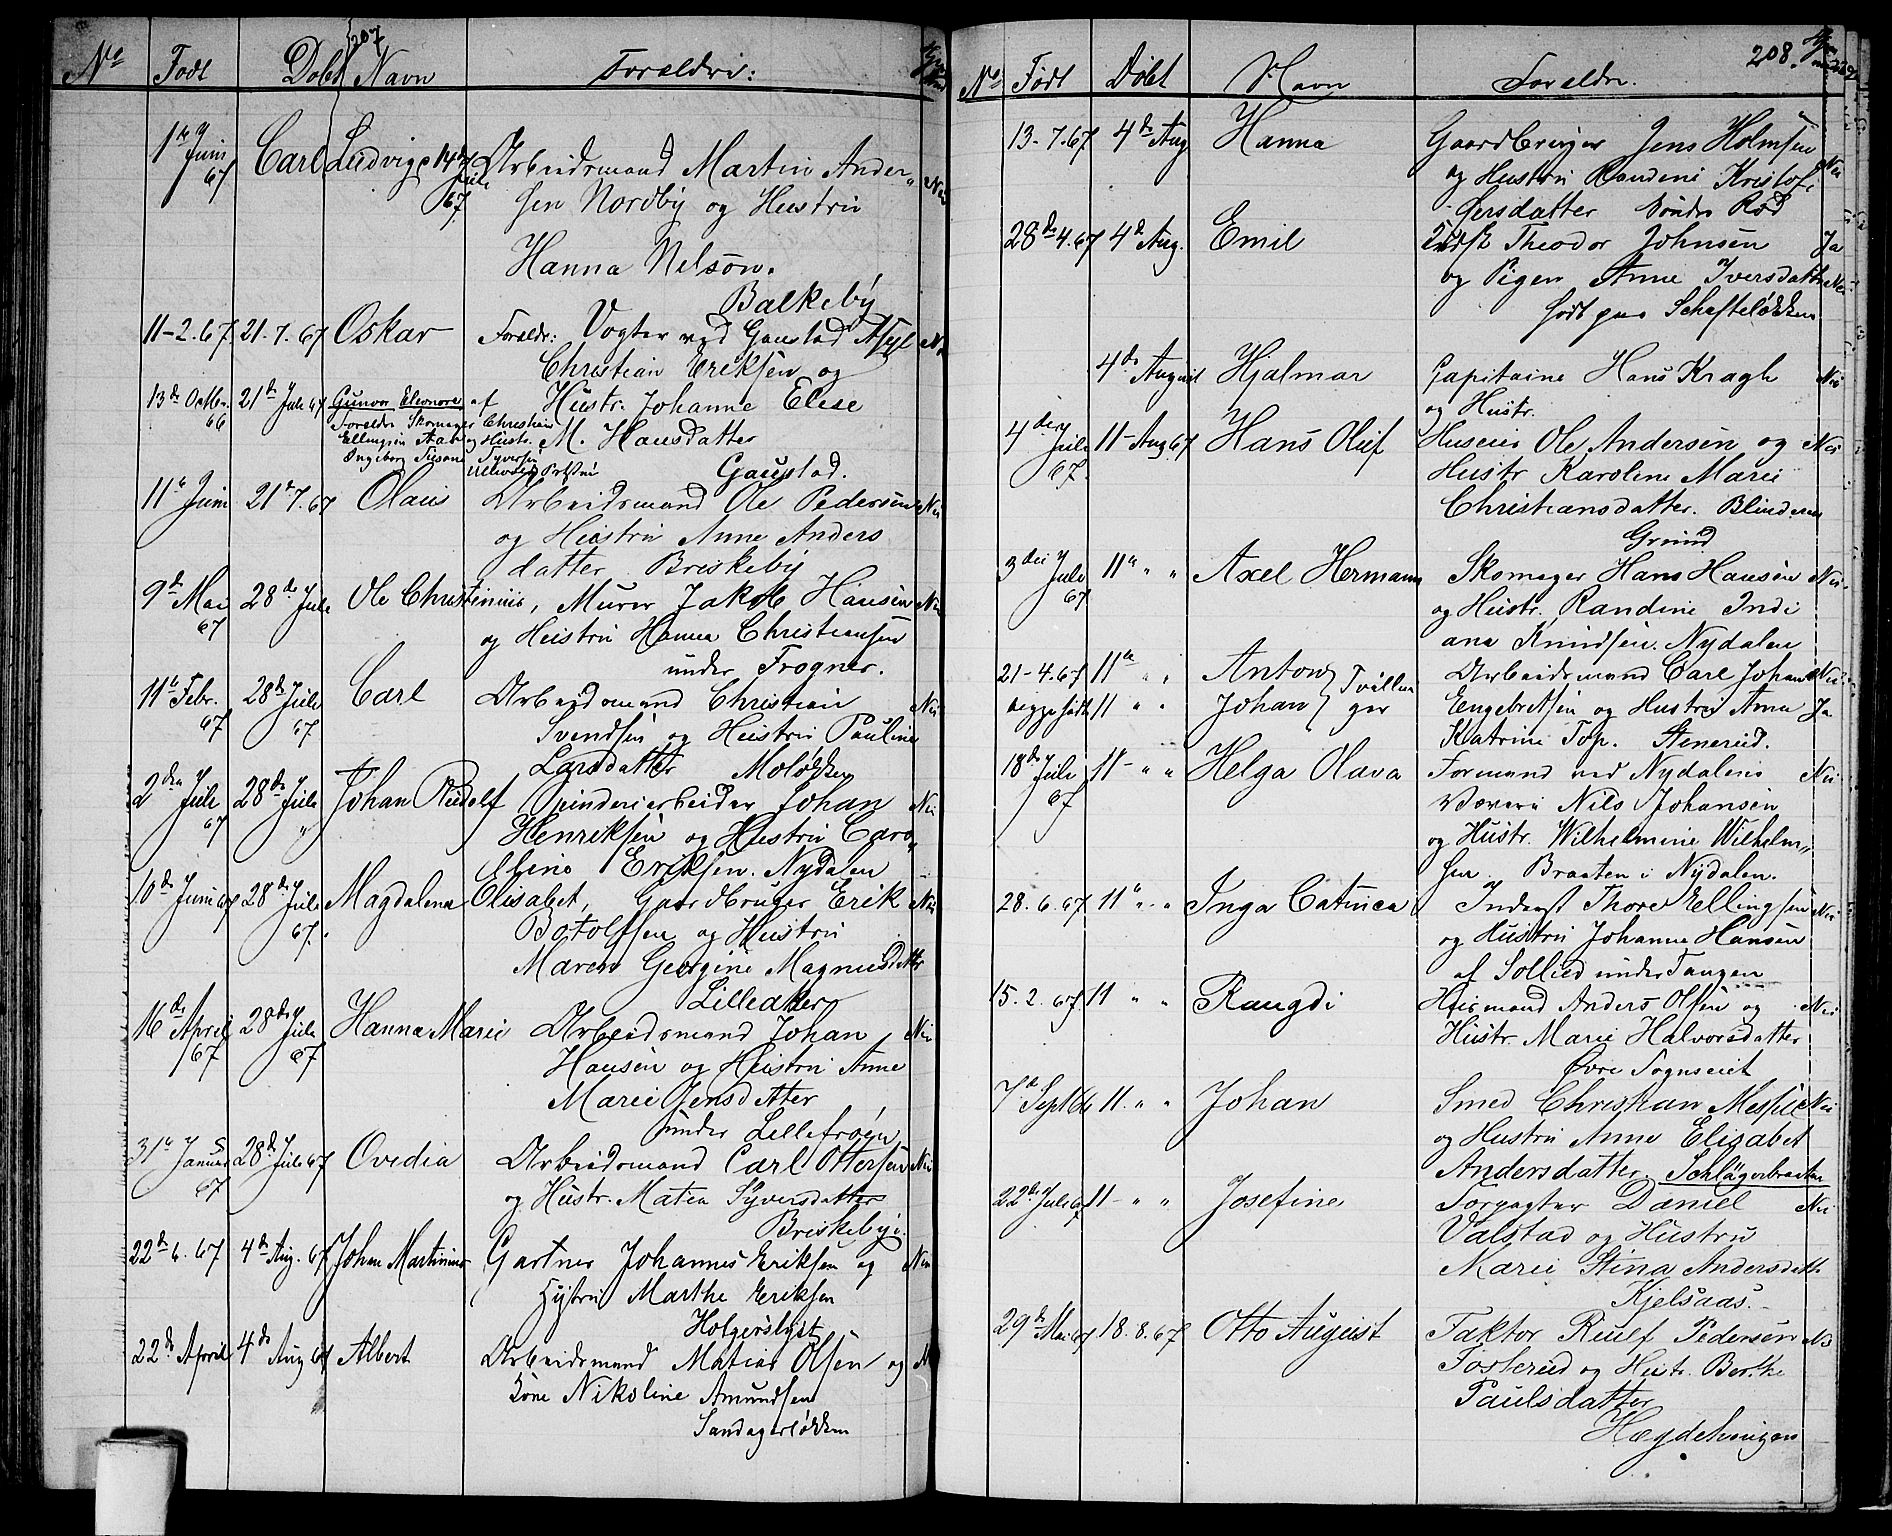 207
No Født Døbt Navn Forældre:
1ste Juni 67 Carl Ludvig 14de Juli 67 Arbeidsmand Martin Ander- Nei
sen Nordby og Hustru
Hanna Nelson.
Balkeby
11-2.67 21.7.67 Oskar Foraeldr: Vogter ved Gaustad Asyl Nei
Christian Eriksen og
Hustr. Johanne Elise
M. Hansdatter
Gaustad.
13de Octbr. 66 21de Juli 67 Gunvor Eleonore af
Foraeldre Skomager Christian
Ellingsen Aas og Hustr.
Ingeborg Susane Syversen
Ullevold
11te Juni 21de 7.67 Olaus Arbeidsmand Ole Pedersen Nei
og Hustru Anne Anders
datter Briskeby
9de Mai 67 28de Juli Ole Christinius, Murer Jakob Hansen Nei
og Hustru Hanna Christiansen
under Frogner.
11te Febr. 67 28de Juli 67 Carl Arbeidsmand Christian Nei
Svendsen og Hustru Pauline
Larsdatter Moløkken
2den Juli 67 28de Juli " Johan Rudolf Spinderiarbeider Johan Nei
Henriksen og Hustru Caro"
lline Eriksen. Nydalen
10de Juni 67 28de Juli 67. Magdalena Elisabet, Gaardbruger Erik Nei
Botolfsen og Hustru
Maren Georgine Magnusdatter
Lilleaker
16de April 67 28de Juli 67 Hanna Marie Arbeidsmand Johan Nei
Hansen og Hustru Anne
Marie Jensdatter
under Lillefrøen
31te Januar 67 28de Juli 67 Ovedia Arbeidsmand Carl Ottersen Nei
og Hustr. Matea Syversdatter
Briskeby.
22de 6. 67 4de Aug. 67 Johan Martinius Gartner Johannes Eriksen og Nei
Hustru Marthe Eriksen
Holgerslyst
22de April 4de Aug 67 Albert Arbeidsmand Matias Olsen og
Kone Nikoline Amundsen
Sandagerløkken
208.
No Født Døbt Navn Foreldre.
13-7.67 4de Aug Hanna Gaardbruger Jens Holmsen Nei
og Hustru Randine Kristofi
fersdatter Søndre Rød
28de 4.67 4de Aug. Emil Theodor Johnsen Ja
og Pigen Anne Iversdatter Nei
født paa Schafteløkken
4de August Hjalmar Capitaine Hans Kragh Nei
og Hustr.
4de Juli 67. 11-Aug 67 Hans Oluf Huseier Ole Andersen og Nei
Hustr Karoline Marie
Christiansdatter. Blindern
Grund
3die Juli 67 11te " " Axel Hermann Skomager Hans Hansen Nei
og Hustr. Randine Indi
ana Knudsen. Nydalen
21-4.67 11te " " Anton } Tvillin Arbeidsmand Carl Johan Nei
begge født 11 " " Johan } ger Engebretsen og Hustru Anna Ja
Katrine Top. Stenerud.
18de Juli 67 11- " " Helga Olava Formand ved Nydalens Nei
Væveri Nils Johansen
og Hustr. Wilhelmine Wilhelm"
sen. Braaten i Nydalen.
28.6.67 11te " " Inga Catinca Inderst Thore Ellingsen Nei
og Hustru Johanne Hansen
af Sollied under Tangen
15.2.67. 11 " " Rangdi Husmand Anders Olsen og Nei
Hustr. Marie Halvorsdatter
Øvre Sognseiet
7de Sept 66 11. " " Johan Smed Christian Messel Nei
og Hustru Anne Elisabet
Andersdatter. Schlägerbraaten
22de Juli 67 11- " " Josefine Forpagter Daniel Nei
Valstad og Hustru
Marie Stina Andersdatt.
Kjelsaas.
29de Mai 67 18.8.67 Otto August Faktor Rulf Pedersen Nei
Fosterud og Hustr. Berthe
Paulsdatter
Hægdehaugen